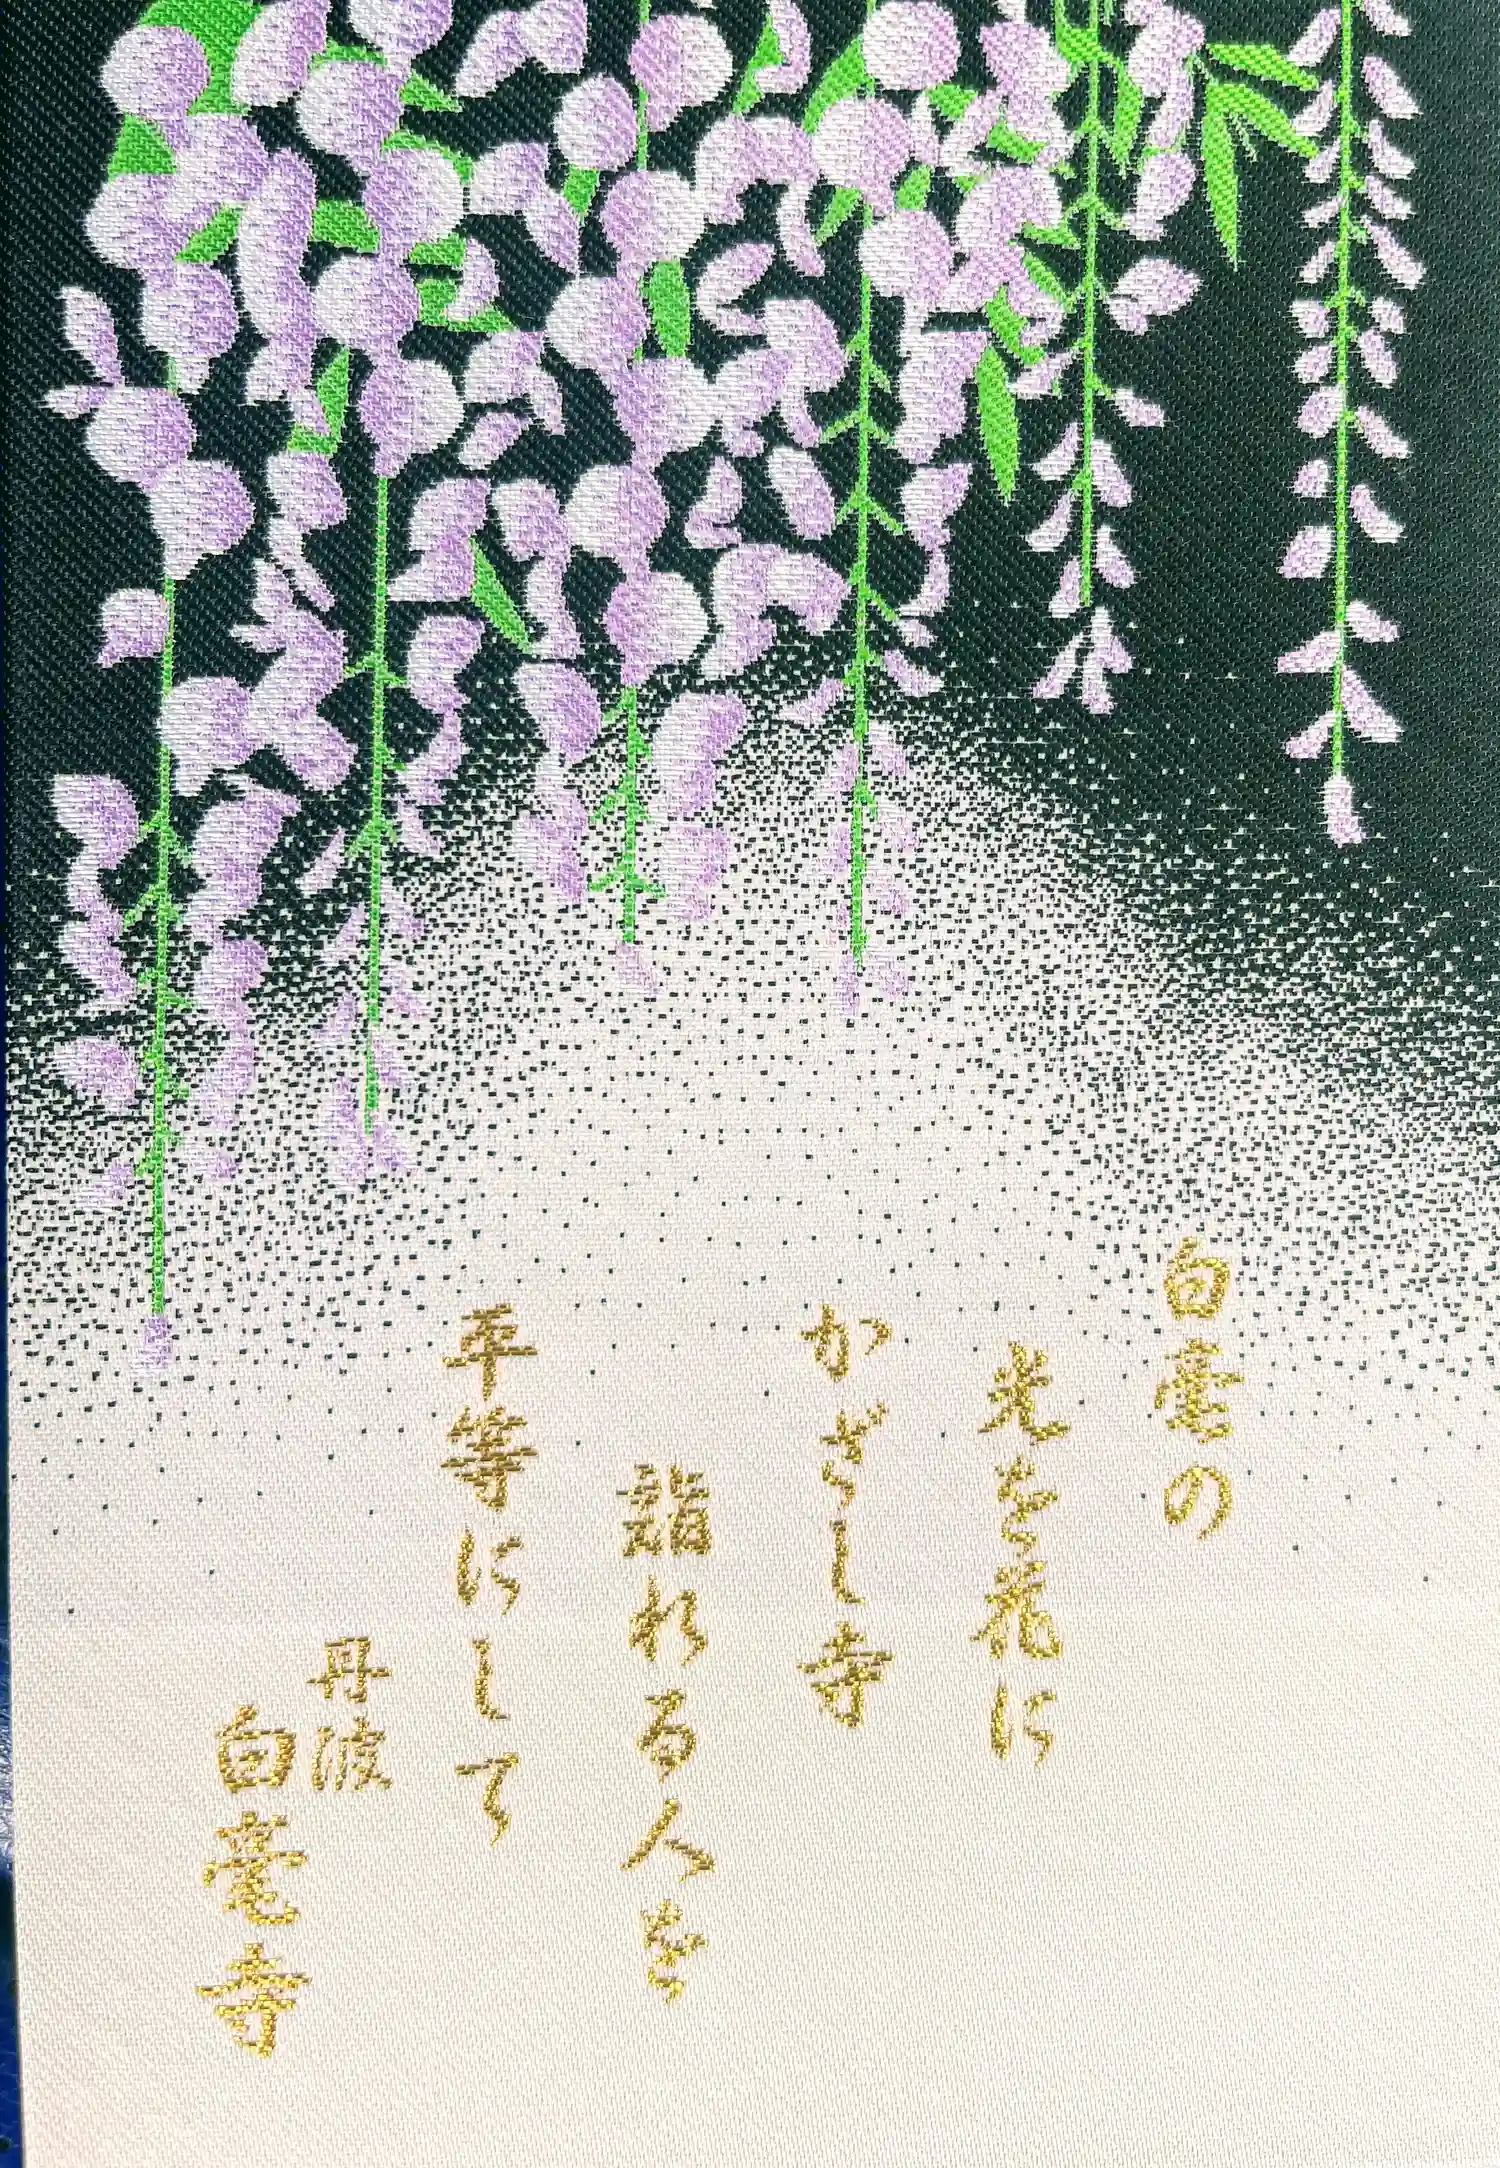 白毫の
光を花に
かざし寺
詣れる人を
平等にして
丹波
白毫寺